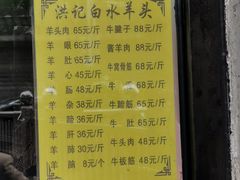 洪记白水羊头
羊头肉 65元/斤 牛腱子 88元/斤
羊 眼 65元/斤 酱羊肉 88元/斤
羊 肚 65元/斤 牛窝骨筋 68元/斤
羊 心 45元/斤 牛 68元/斤
羊 肠 48元/斤 牛 68元/斤
羊 杂 38元/斤 牛蹄筋 45元/斤
羊 36元/斤 牛 肚 65元/斤
羊 肝 36元/斤 牛头肉 48元/斤
羊 肺 30元/斤 牛板筋 48元/斤
羊 脑 8元/个